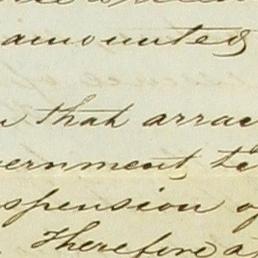 amounted
that arrac
ernment, to
spension of
Therefore a